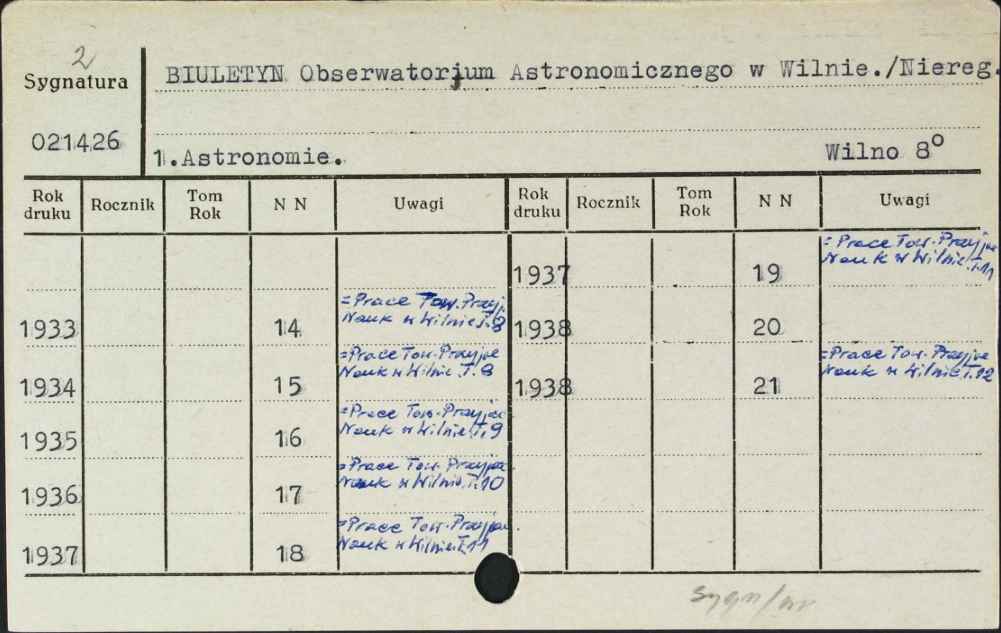 2
Sygnatura
021426
BIULETYN Obserwatorjum Astronomicznego w Wilnie./Niereg.
1.Astronomie.
Wilno 8°
Rok druku Rocznik Tom Rok N N Uwagi Rok druku Rocznik Tom Rok N N Uwagi
1933 14 =Prace Tow. Przyj. Nauk w Wilnie T.8
1934 15 =Prace Tow. Przyjac Nauk w Wilnie.T.8
1935 16 =Prace Tow. Przyjac Nauk w Wilnie T.9
1936 17 =Prace Tow. Przyjac Nauk w Wilnie.T.10
1937 18 =Prace Tow. Przyjac. Nauk w Wilnie T.11
1937 19 =Prace Tow. Przyjac Nauk w Wilnie.T.11
1938 20
1938 21 =Prace Tow. Przyjac Nauk w Wilnie.T.12